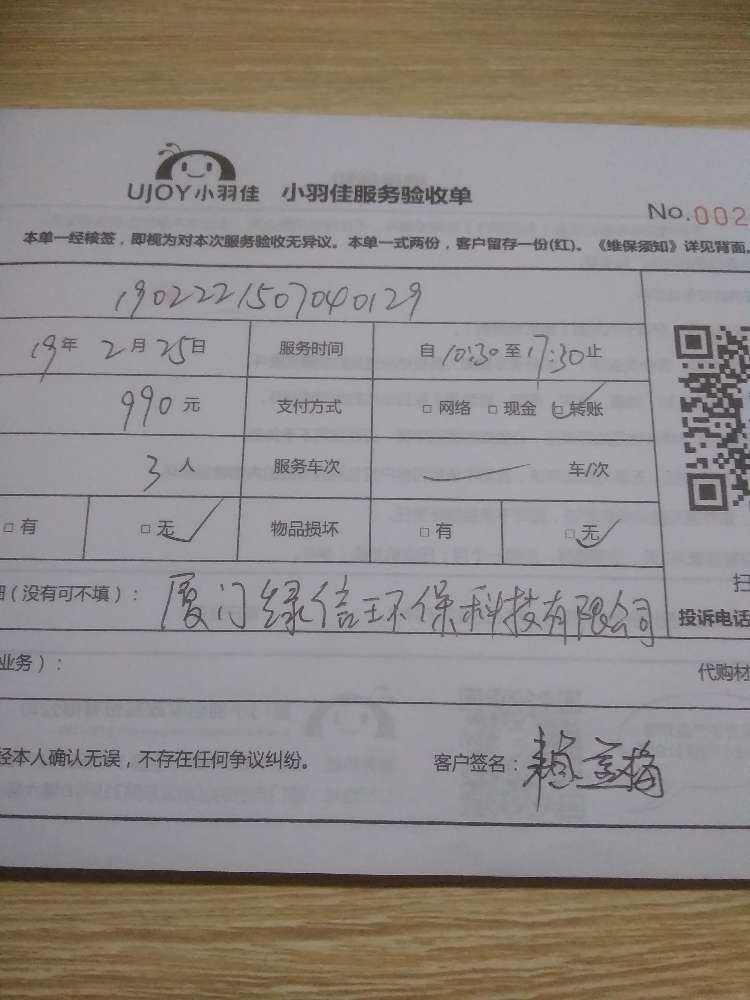 UJOY小羽佳 小羽佳服务验收单
No.002
本单一经核签，即视为对本次服务验收无异议。本单一式两份，客户留存一份(红)。《维保须知》详见背面。
1902221507040129
19年 2月 25日 服务时间 自 10:30 至 17:30 止
990 元 支付方式 □ 网络 □ 现金 □ 转账
3 人 服务车次 车/次
□ 有 □ 无 物品损坏 □ 有 □ 无
扫
细（没有可不填）： 厦门绿信环保科技有限公司
投诉电话
业务）：
代购材
经本人确认无误，不存在任何争议纠纷。 客户签名：